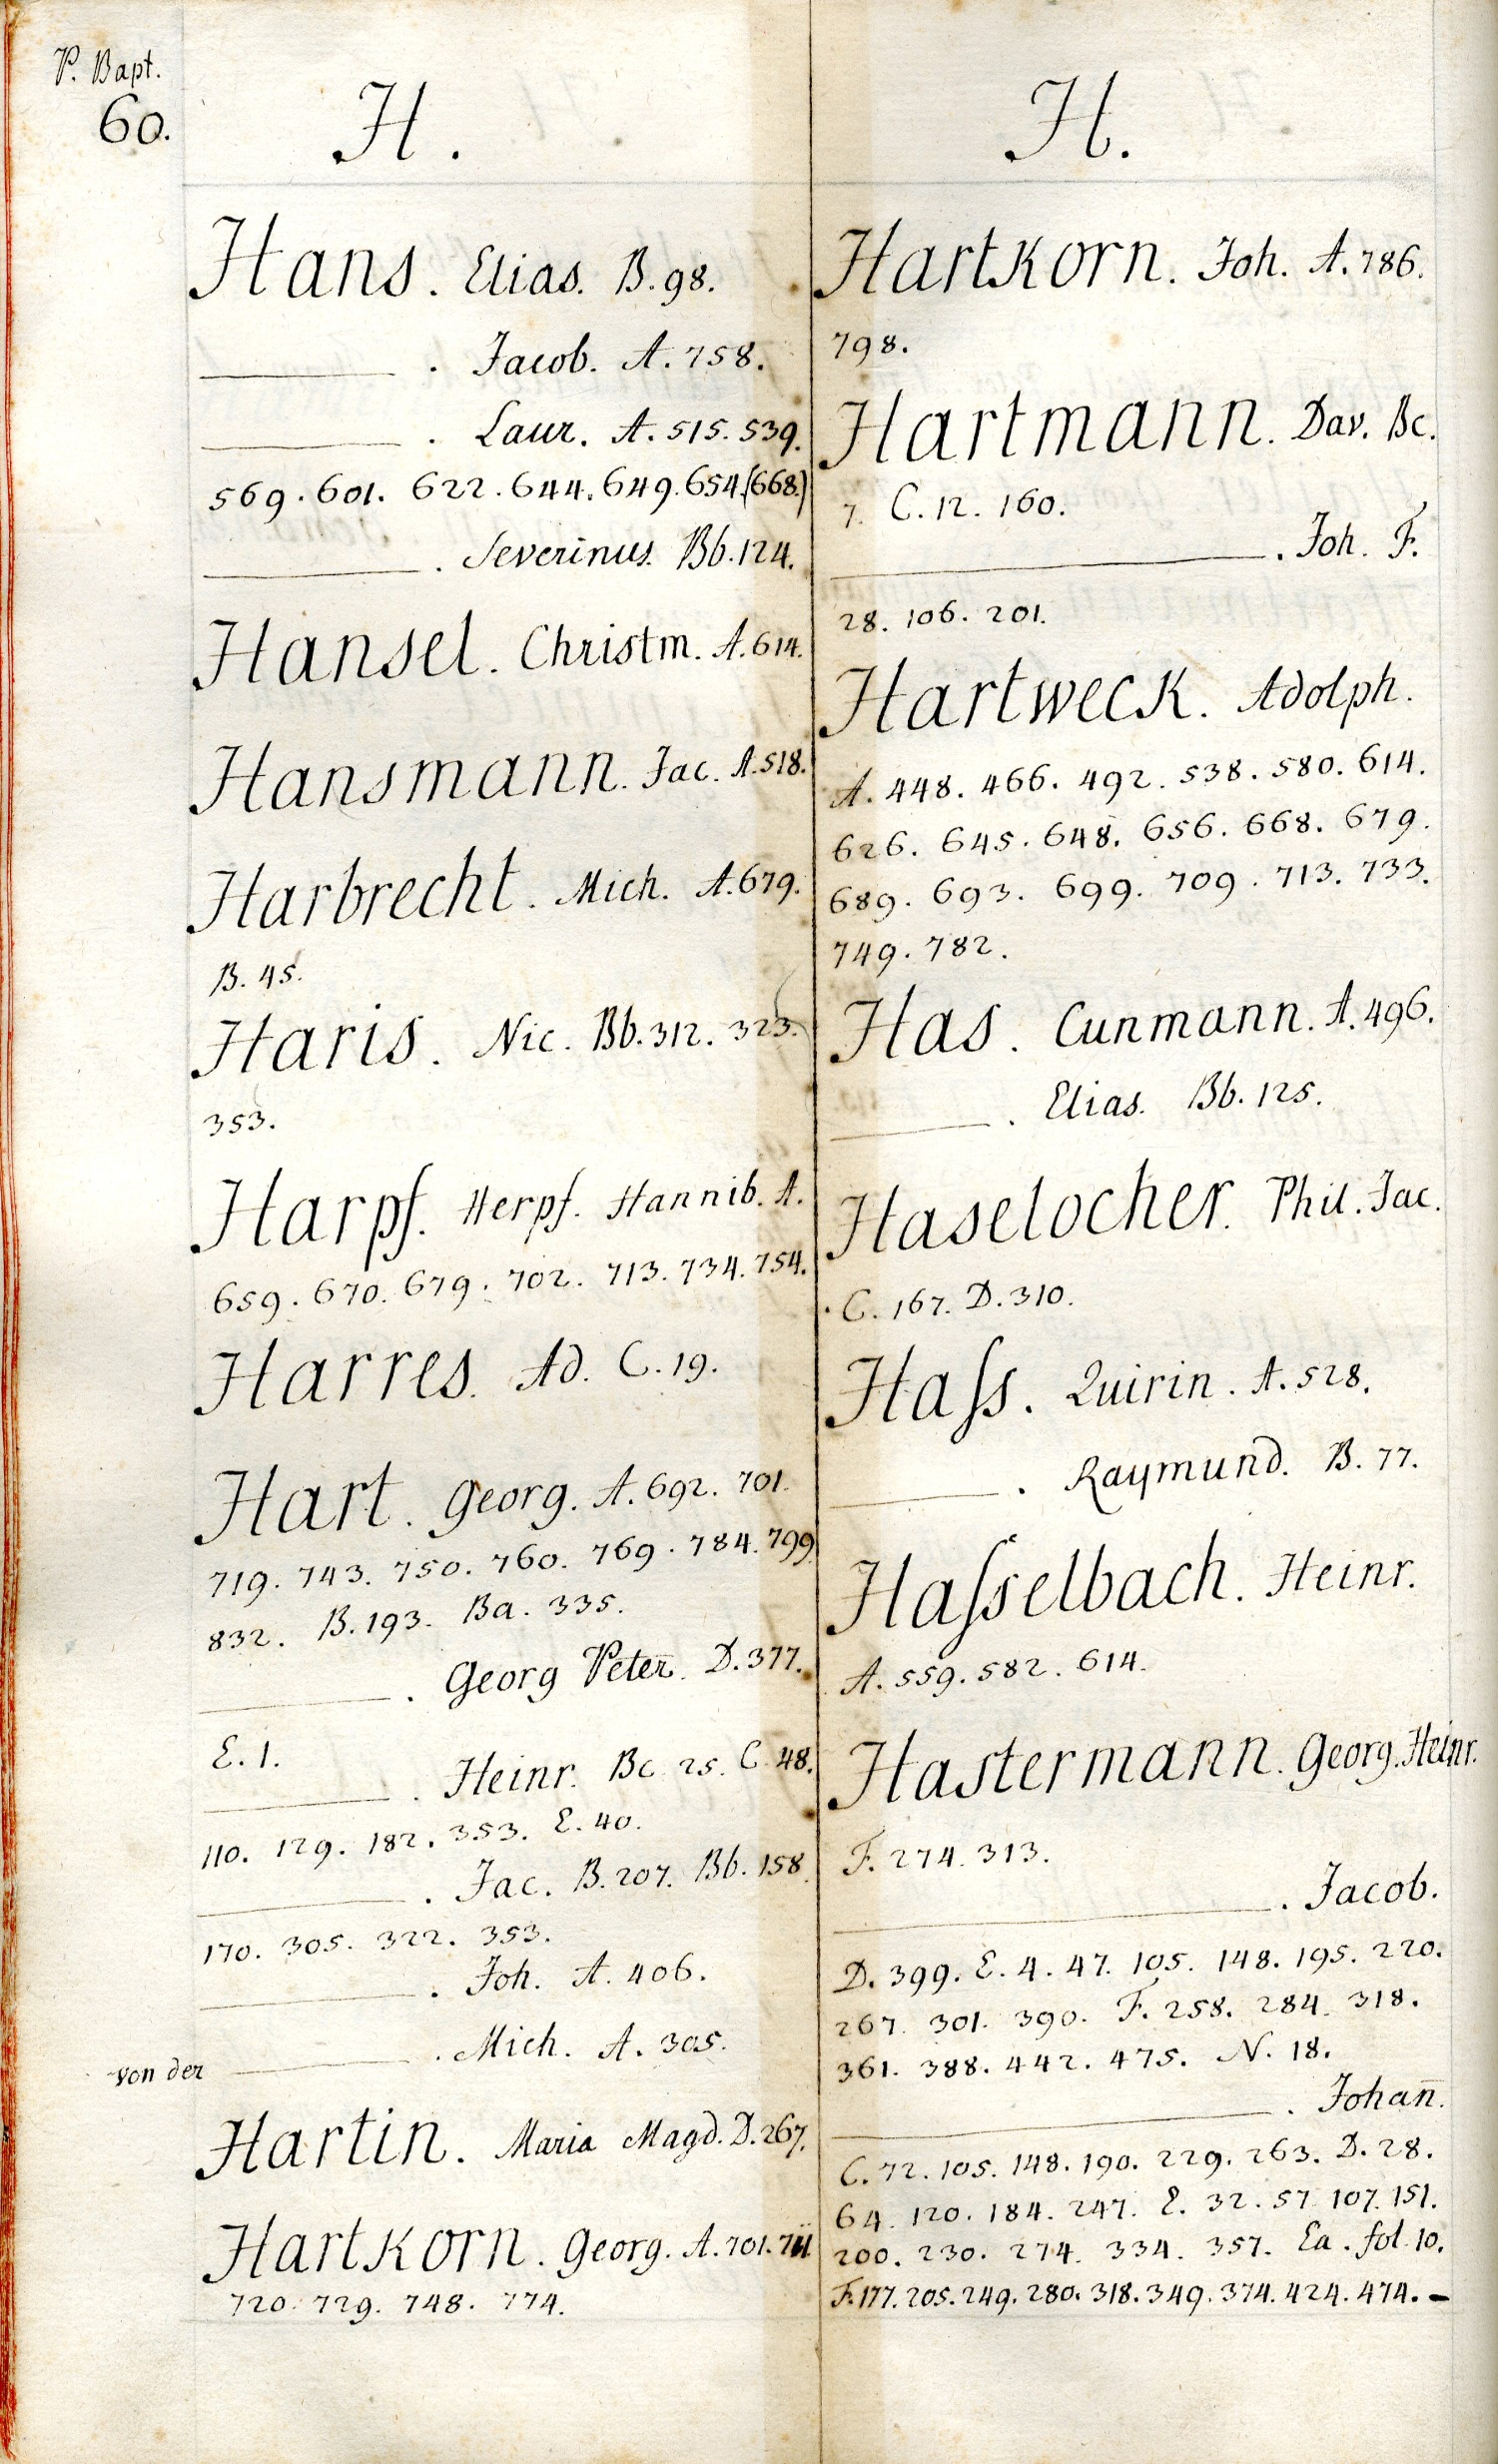 P. Bapt.
60.
H.
Hans. Elias. B. 98.
———. Jacob. A. 758.
———. Laur. A. 515. 539.
569. 601. 622. 644. 649. 654. (668.)
———. Severinus. Bb. 124.
Hansel. Christm. A. 614.
Hansmann. Jac. A. 518.
Harbrecht. Mich. A. 679.
B. 45.
Haris. Nic. Bb. 312. 323.
353.
Harpf. Herpf. Hannib. A.
659. 670. 679. 702. 713. 734. 754.
Harres. Ad. C. 19.
Hart. Georg. A. 692. 701.
719. 743. 750. 760. 769. 784. 799.
832. B. 193. Ba. 335.
———. Georg Peter. D. 377.
E. 1.
———. Heinr. Bc. 25. C. 48.
110. 129. 182. 353. E. 40.
———. Jac. B. 207. Bb. 158.
170. 305. 322. 353.
———. Joh. A. 406.
von der ———. Mich. A. 305.
Hartin. Maria Magd. D. 267.
Hartkorn. Georg. A. 701. 711.
720. 729. 748. 774.
H.
Hartkorn. Joh. A. 786.
798.
Hartmann. Dav. Bc.
7. C. 12. 160.
———. Joh. F.
28. 106. 201.
Hartweck. Adolph.
A. 448. 466. 492. 538. 580. 614.
626. 645. 648. 656. 668. 679.
689. 693. 699. 709. 713. 733.
749. 782.
Has. Cunmann. A. 496.
———. Elias. Bb. 125.
Haselocher. Phil. Jac.
C. 167. D. 310.
Haſs. Quirin. A. 528.
———. Raymund. B. 77.
Haſselbach. Heinr.
A. 559. 582. 614.
Hastermann. Georg. Heinr.
F. 274. 313.
———. Jacob.
D. 399. E. 4. 47. 105. 148. 195. 220.
267. 301. 390. F. 258. 284. 318.
361. 388. 442. 475. N. 18.
———. Johan̄.
C. 72. 105. 148. 190. 229. 263. D. 28.
64. 120. 184. 247. E. 32. 57. 107. 151.
200. 230. 274. 334. 357. Ea. fol. 10.
F. 177. 205. 249. 280. 318. 349. 374. 424. 474. –